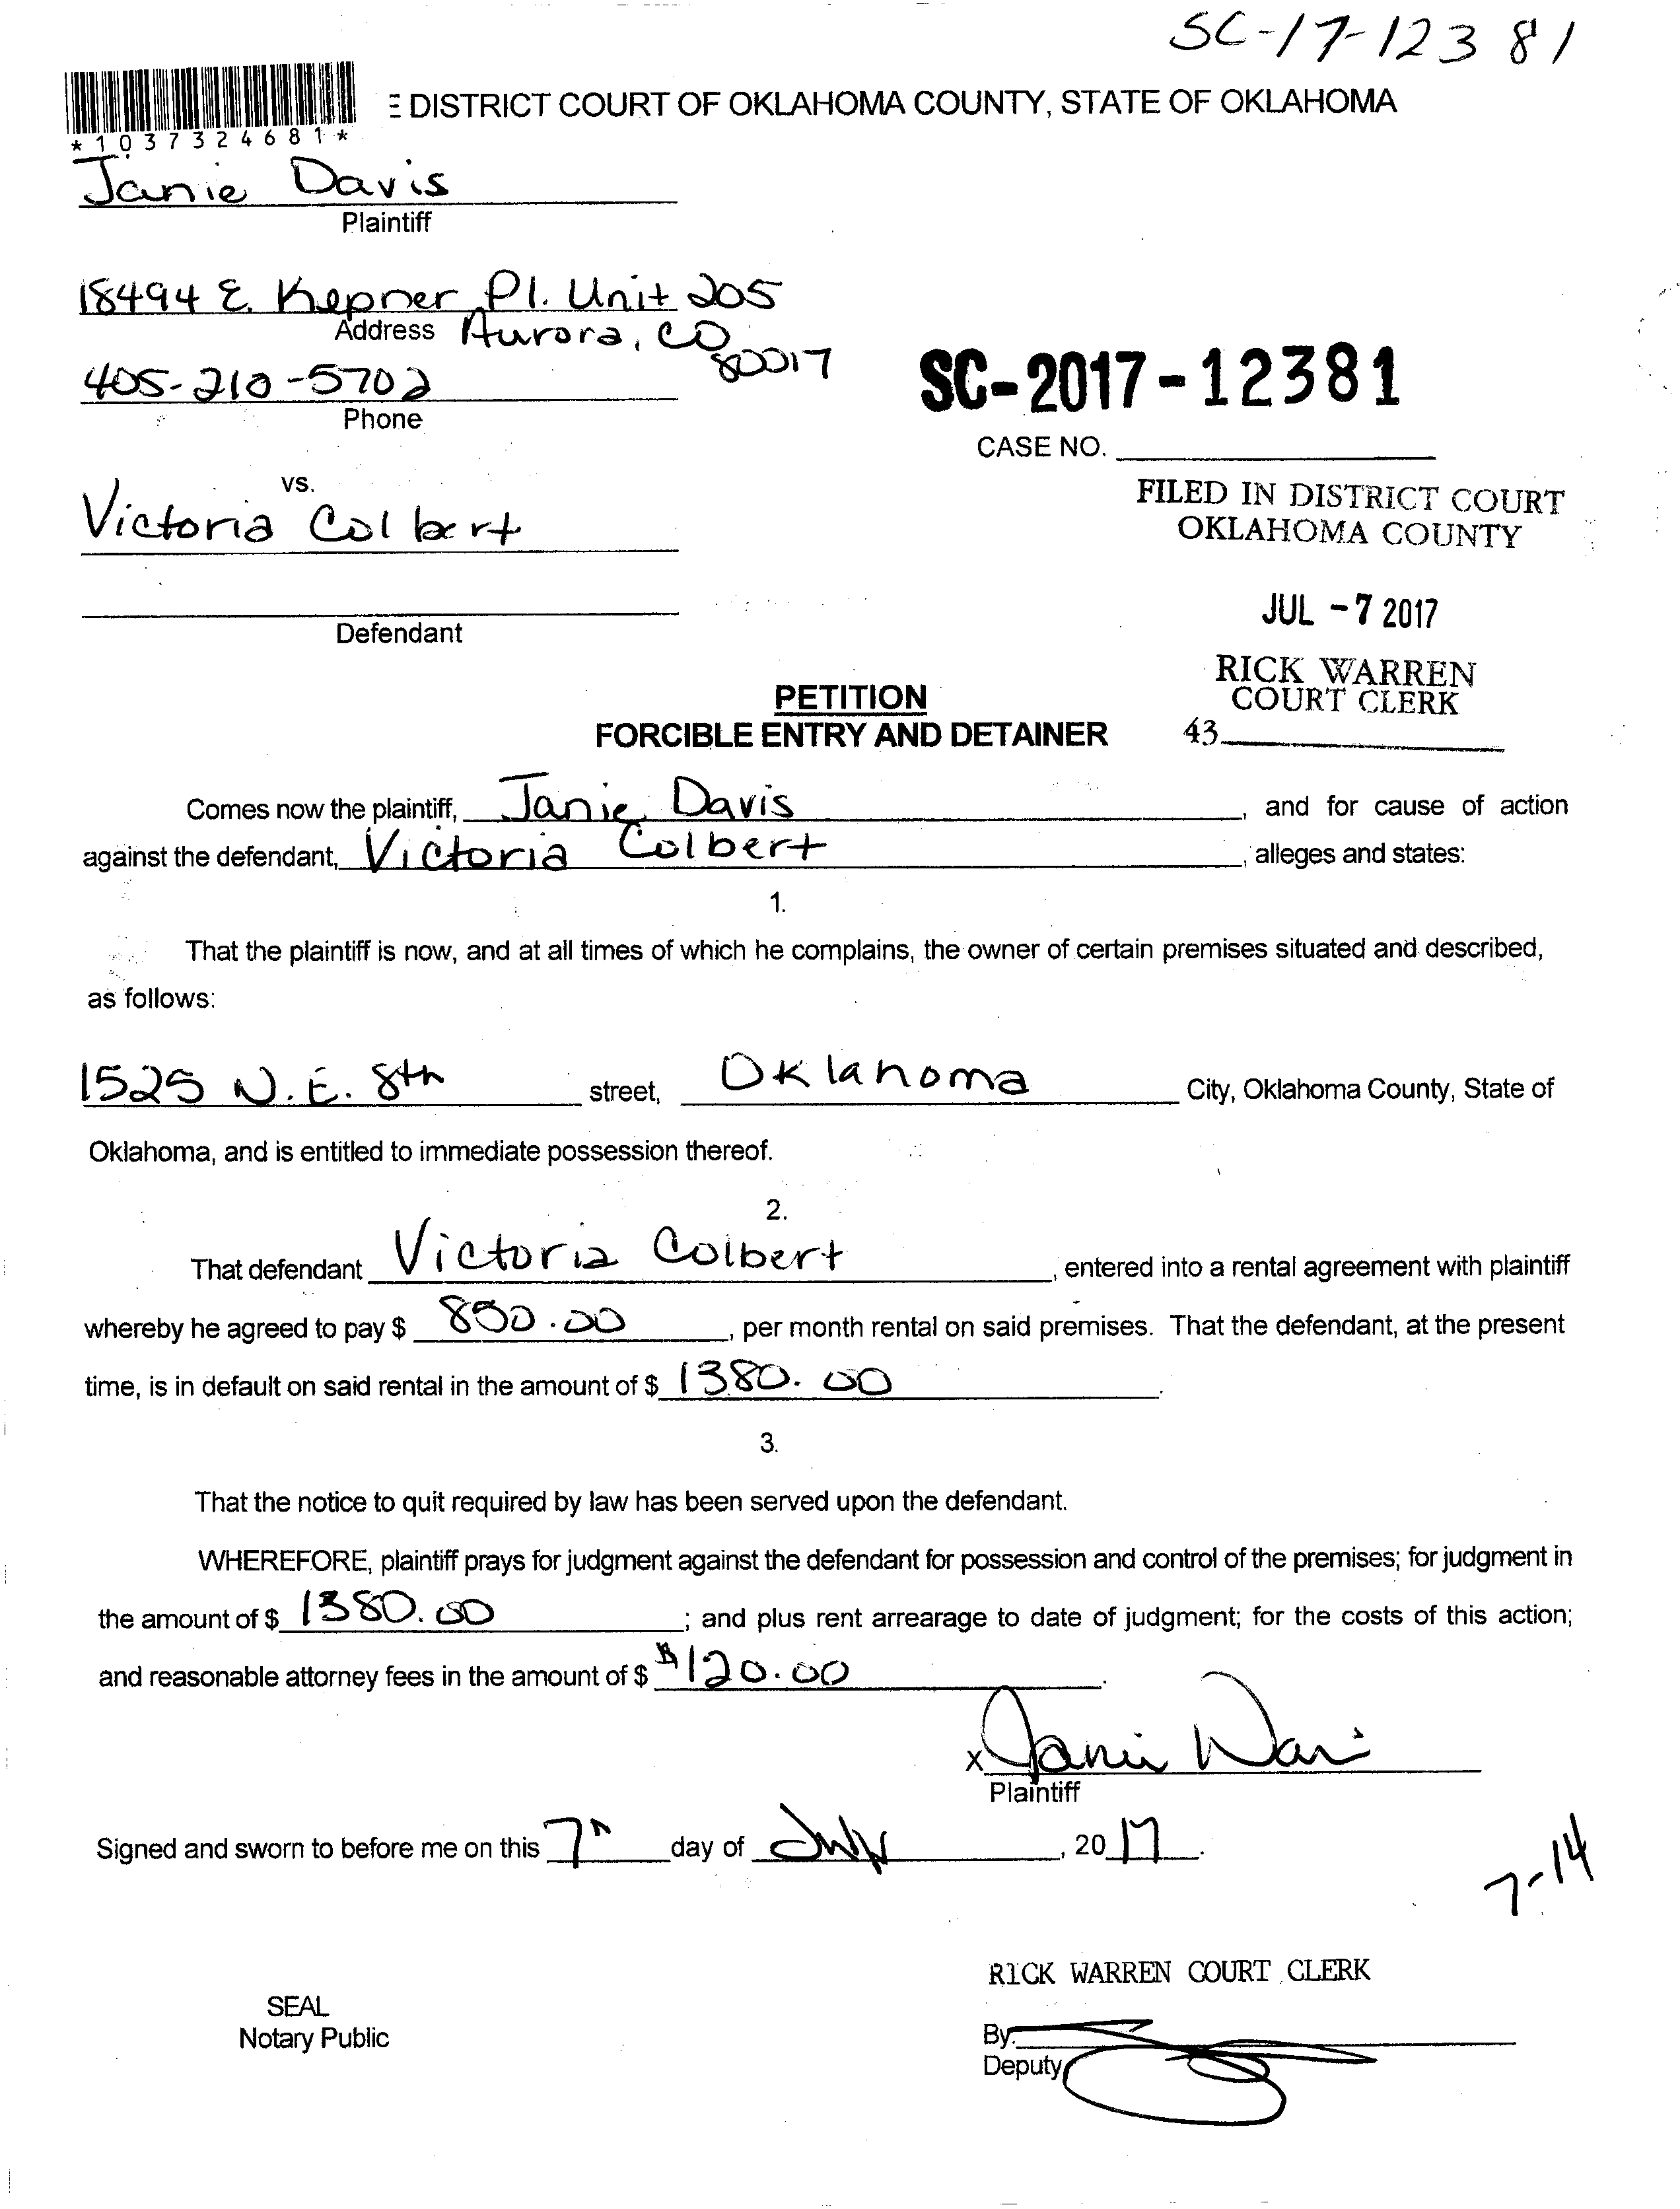 SC-17-12381
E DISTRICT COURT OF OKLAHOMA COUNTY, STATE OF OKLAHOMA
*1037324681*
Janie Davis
Plaintiff
18494 E. Kepner Pl. Unit 205
Address Aurora, CO
80017
405-210-5702
Phone
SC-2017-12381
CASE NO.
vs.
Victoria Colbert
FILED IN DISTRICT COURT
OKLAHOMA COUNTY
Defendant
JUL -7 2017
RICK WARREN
COURT CLERK
43
PETITION
FORCIBLE ENTRY AND DETAINER
Comes now the plaintiff, Janie Davis, and for cause of action
against the defendant, Victoria Colbert, alleges and states:
1.
That the plaintiff is now, and at all times of which he complains, the owner of certain premises situated and described,
as follows:
1525 N.E. 8th street, Oklahoma City, Oklahoma County, State of
Oklahoma, and is entitled to immediate possession thereof.
2.
That defendant Victoria Colbert, entered into a rental agreement with plaintiff
whereby he agreed to pay $ 850.00, per month rental on said premises. That the defendant, at the present
time, is in default on said rental in the amount of $ 1380.00.
3.
That the notice to quit required by law has been served upon the defendant.
WHEREFORE, plaintiff prays for judgment against the defendant for possession and control of the premises; for judgment in
the amount of $ 1380.00; and plus rent arrearage to date of judgment; for the costs of this action;
and reasonable attorney fees in the amount of $ $120.00.
x Janie Davis
Plaintiff
Signed and sworn to before me on this 7th day of July, 2017.
7-14
RICK WARREN COURT CLERK
SEAL
Notary Public
By:
Deputy